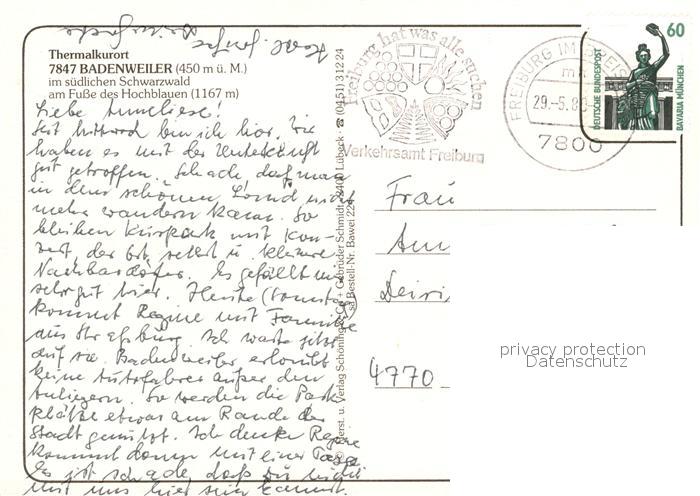 Thermalkurort
7847 BADENWEILER (450 m ü. M.)
im südlichen Schwarzwald
am Fuße des Hochblauen (1167 m)
Liebe Anneliese!
Seit Mittwoch bin ich hier. Wir
haben es mit der Unterkunft
gut getroffen. Schade daß man
in dem schönen Land nicht
mehr wandern kann. So
bleiben Kurpark mit Kon-
zert, der Ort selbst u. kleine
Nachbardörfer. Es gefällt mir
sehr gut hier. Heute (Sonntag)
kommt Regine mit Familie
aus Straßburg. Ich warte jetzt
auf sie. Badenweiler erlaubt
keine Autofahrer außer den
Anliegern. So werden die Park-
plätze etwas am Rande der
Stadt genutzt. Ich denke Regine
kommt dann mit einer
Es ist schade, daß du nicht
mit uns hier sein kannst.
Verlag Schöning & Co + Gebrüder Schmidt, 2400 Lübeck · ☎ (0451) 31224
Bestell-Nr. Bawei 224
Freiburg hat was alle suchen
Verkehrsamt Freiburg
FREIBURG IM BREIS
29.-5.8
7800
60
DEUTSCHE BUNDESPOST
BAVARIA MÜNCHEN
Frau
Ann
4770
privacy protection
Datenschutz